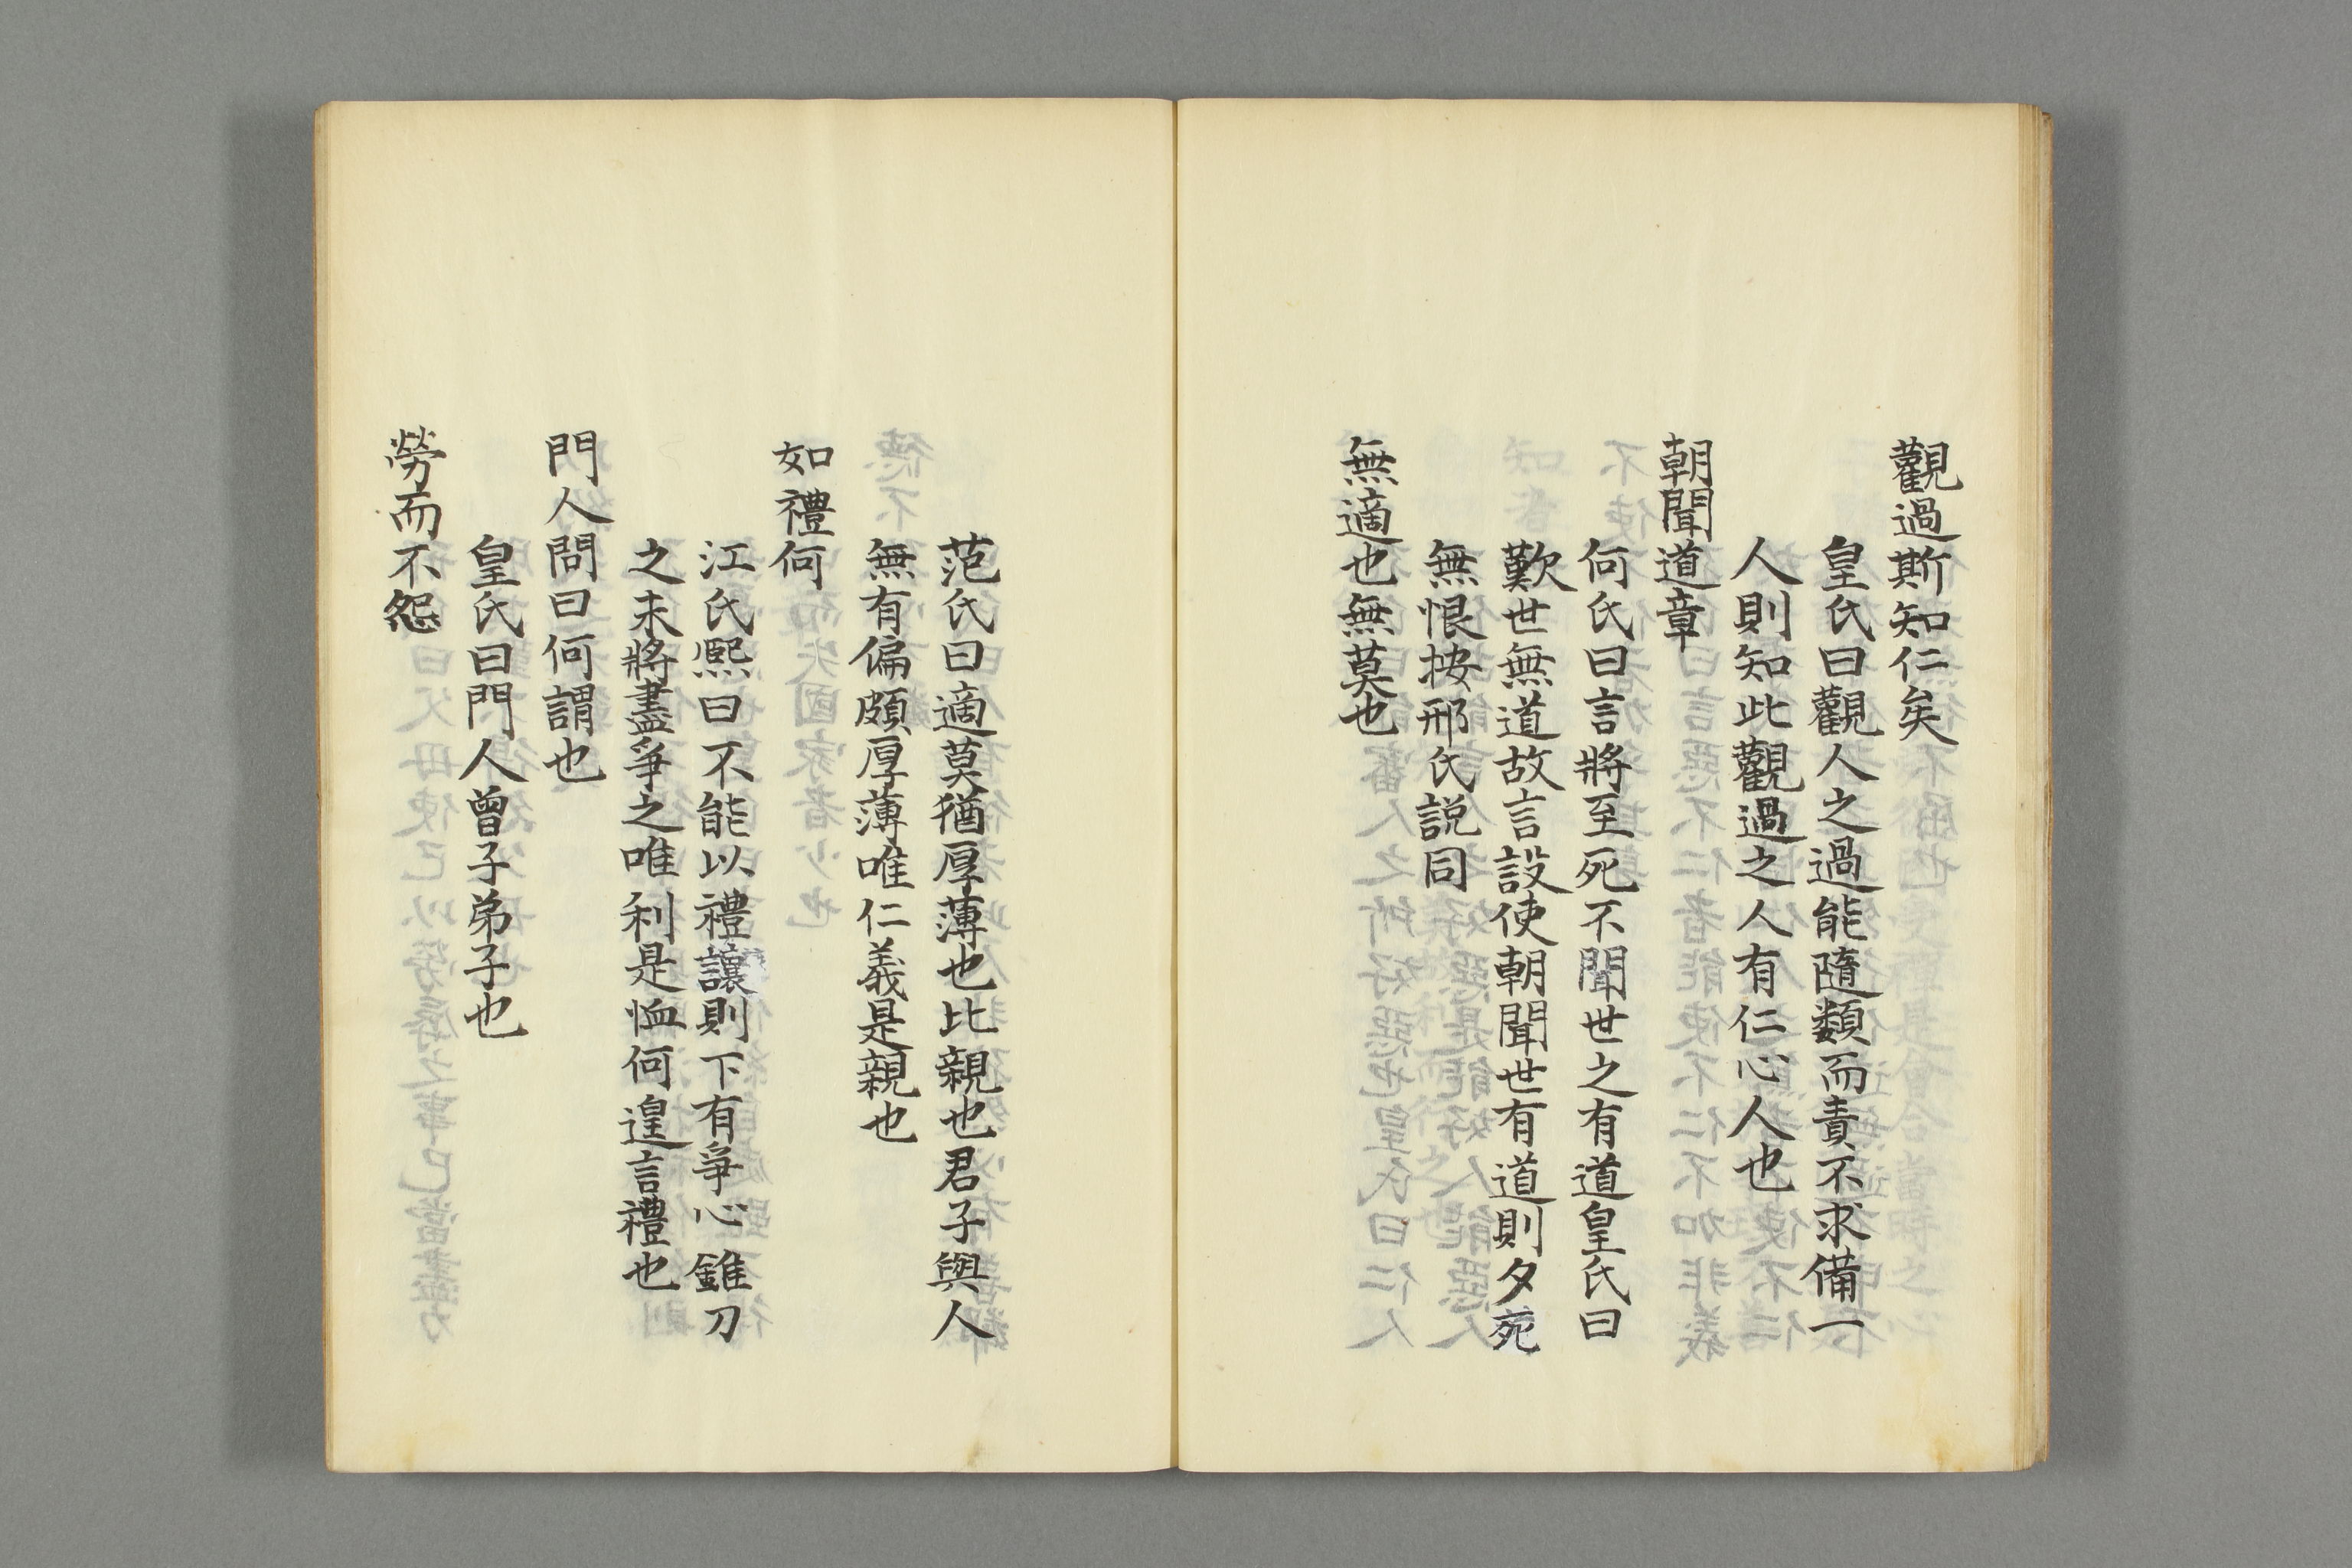 觀過斯知仁矣
皇氏曰觀人之過能隨類而責不求備一
人則知此觀過之人有仁心人也
朝聞道章
何氏曰言將至死不聞世之有道皇氏曰
歎世無道故言設使朝聞世有道則夕死
無恨按邢氏説同
無適也無莫也
范氏曰適莫猶厚薄也比親也君子與人
無有偏頗厚薄唯仁義是親也
如禮何
江氏熙曰不能以禮讓則下有爭心錐刀
之末將盡爭之唯利是恤何遑言禮也
門人問曰何謂也
皇氏曰門人曾子弟子也
勞而不怨